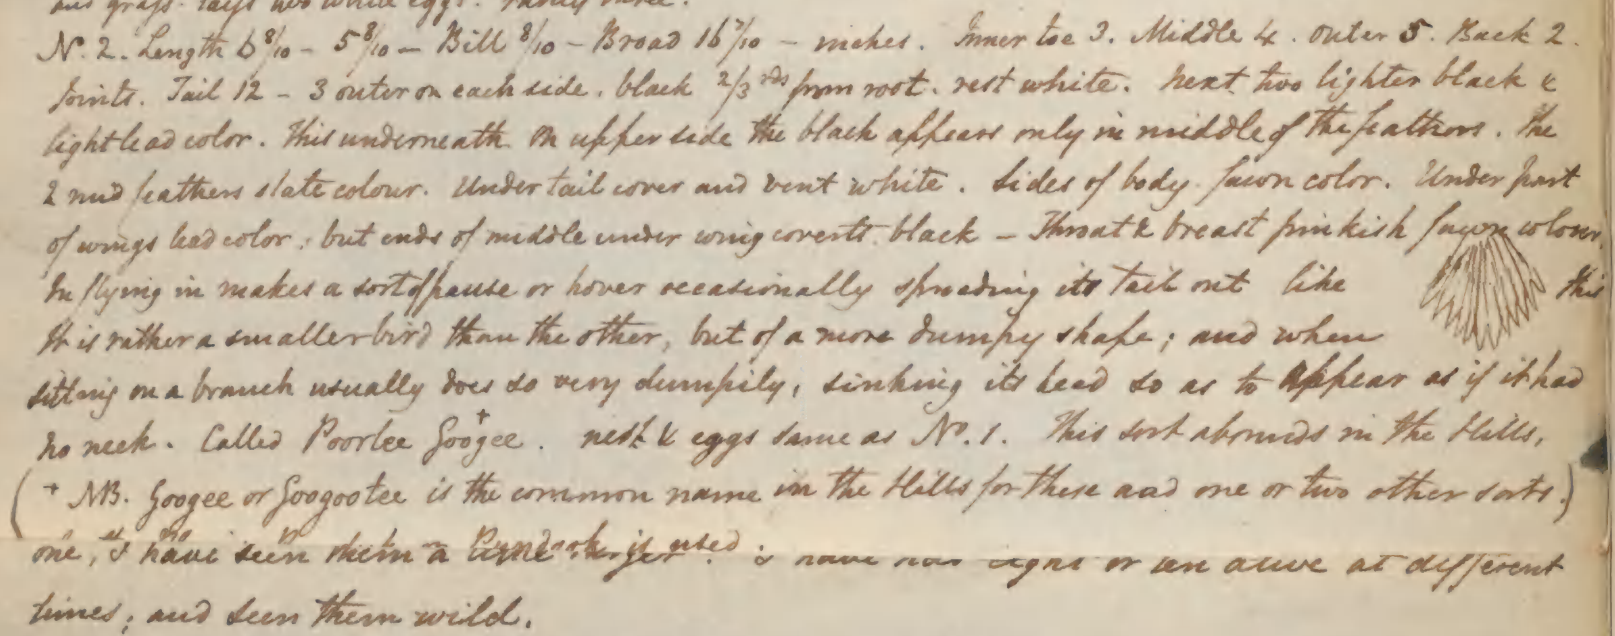 and grass. lays two white eggs.
N. 2. Length 6 8/10 - 5 8/10 - Bill 8/10 - Broad 16 7/10 - inches. Inner toe 3. Middle 4. outer 5. Back 2.
Joints. Tail 12 - 3 outer on each side. black 2/3rds from root. rest white. next two lighter black &
light lead color. This underneath. On upper side the black appears only in middle of the feathers. The
2 mid feathers slate colour. Under tail cover and vent white. Sides of body fawn color. Under part
of wings lead color; but ends of middle under wing coverts black - Throat & breast pinkish fawn colour.
In flying in makes a sort of pause or hover occasionally spreading its tail out like this
It is rather a smaller bird than the other, but of a more dumpy shape; and when
sitting on a branch usually does so very dumpily, sinking its head so as to appear as if it had
no neck. Called Poorlee Googee +. nest & eggs same as No. 1. This sort abounds in the Hills,
( + NB. Googee or Googootee is the common name in the Hills for these and one or two other sorts.)
one, I have seen them a is used. I have had eight or ten alive at different
times; and seen them wild.